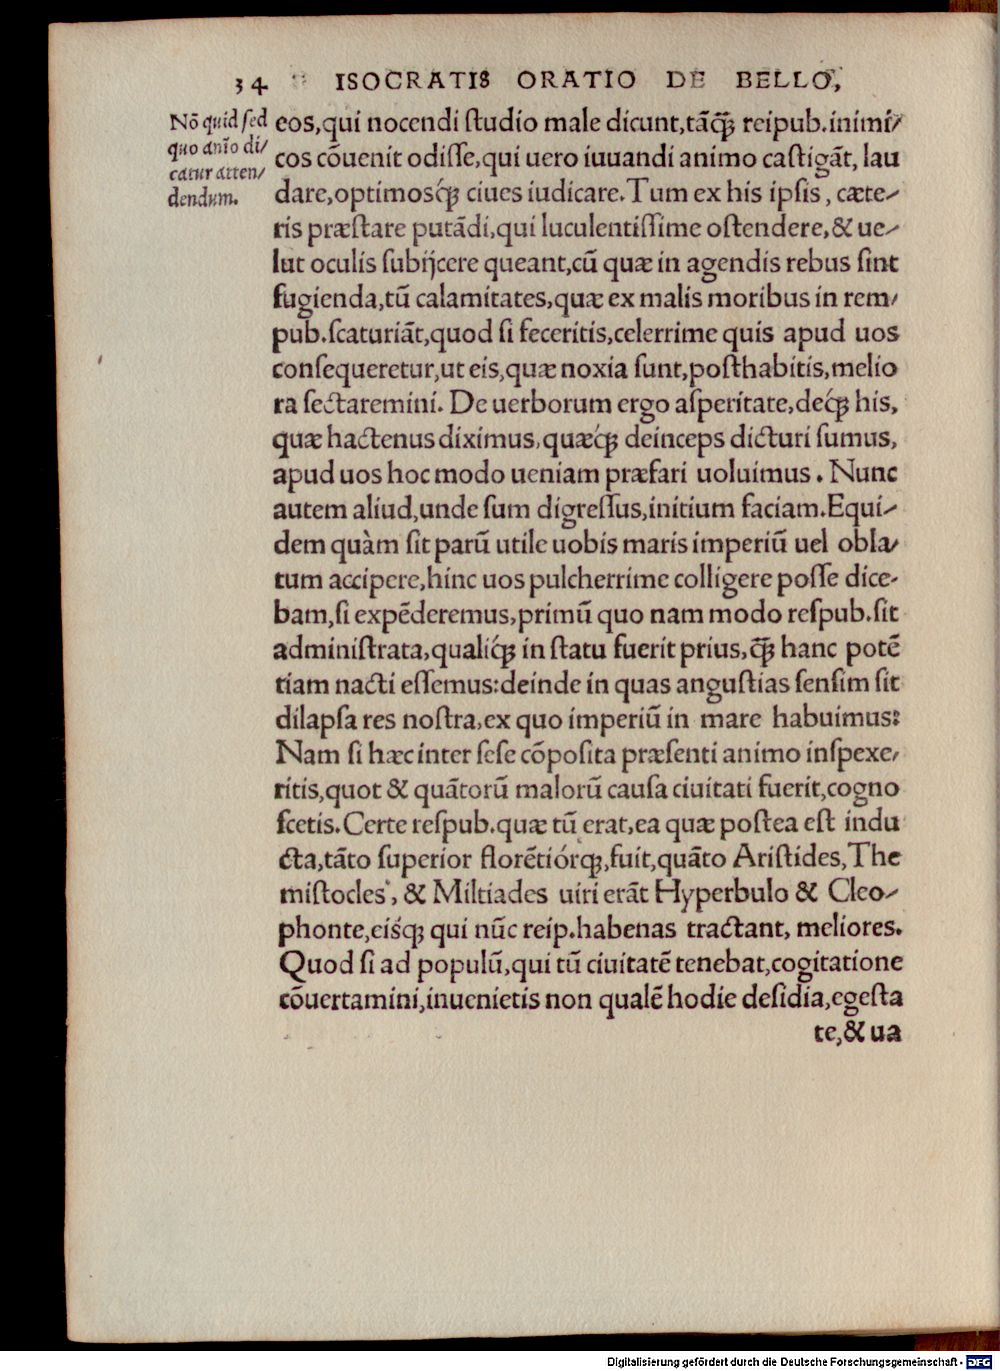 34 ISOCRATIS ORATIO DE BELLO,
Nō quid ſed
quo anīo di/
catur atten/
dendum.
eos,qui nocendi ſtudio male dicunt,tāq̄ꝫ reipub.inimi/
cos cōuenit odiſſe,qui uero iuuandi animo caſtigāt, lau
dare,optimosq́ꝫ ciues iudicare.Tum ex his ipſis, cæte/
ris præſtare putādi,qui luculentiſſime oſtendere,& ue/
lut oculis ſubijcere queant,cū quæ in agendis rebus ſint
fugienda,tū calamitates,quæ ex malis moribus in rem/
pub.ſcaturiāt,quod ſi feceritis,celerrime quis apud uos
conſequeretur,ut eis,quæ noxia ſunt,poſthabitis,melio
ra ſectaremini. De uerborum ergo aſperitate,deq́ꝫ his,
quæ hactenus diximus,quæq́ꝫ deinceps dicturi ſumus,
apud uos hoc modo ueniam præfari uoluimus. Nunc
autem aliud,unde ſum digreſſus,initium faciam.Equi/
dem quàm ſit parū utile uobis maris imperiū uel obla/
tum accipere,hinc uos pulcherrime colligere poſſe dice/
bam,ſi expēderemus,primū quo nam modo reſpub.ſit
adminiſtrata,qualiq́ꝫ in ſtatu fuerit prius,q̄ꝫ hanc potē
tiam nacti eſſemus:deinde in quas anguſtias ſenſim ſit
dilapſa res noſtra,ex quo imperiū in mare habuimus:
Nam ſi hæc inter ſeſe cōpoſita præſenti animo inſpexe/
ritis,quot & quātorū malorū cauſa ciuitati fuerit,cogno
ſcetis.Certe reſpub.quæ tū erat,ea quæ poſtea eſt indu
cta,tāto ſuperior florētiórqꝫ,fuit,quāto Ariſtides,The
miſtocles, & Miltiades uiri erāt Hyperbulo & Cleo/
phonte,eiśqꝫ qui nūc reip.habenas tractant, meliores.
Quod ſi ad populū,qui tū ciuitatē tenebat,cogitatione
cōuertamini,inuenietis non qualē hodie deſidia,egeſta
te,& ua
Digitalisierung gefördert durch die Deutsche Forschungsgemeinschaft - DFG